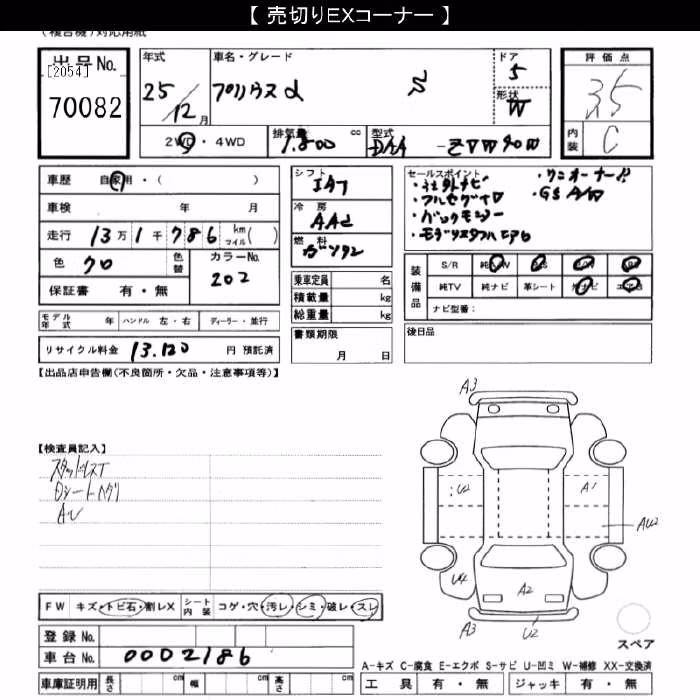 【 売切りEXコーナー 】
(複合機)対応用紙
出品No.
[2054]
70082
年式
25/12月
車名・グレード
プリウスα S
ドア
5
形状
W
評価点
3.5
内装
C
2WD・4WD
排気量
1.800 cc
型式
DAA-ZVW40W
車歴 自家用・( )
車検 年 月
走行 13万1千786 km マイル( )
色 クロ
色替
カラーNo.
202
保証書 有・無
シフト
IAT
冷房
AAC
燃料
ガソリン
セールスポイント
・社外ナビ
・フルセグ
・バックモニター
・モデリスタフルエアロ
・ワンオーナー!!
・GS A/W
乗車定員 名
積載量 kg
総重量 kg
装備品
S/R 純AW P/S P/W ABS
純TV 純ナビ 革シート 外ナビ エアB
ナビ型番:
モデル年式 年 ハンドル 左・右 ディーラー・並行
リサイクル料金 13.120 円 預託済
書類期限
月 日
後日品
【出品店申告欄(不良箇所・欠品・注意事項等)】
【検査員記入】
スタッドレスT
Dシートヘタリ
AU
A3
U2
A1
AU2
U4
A2
A3
U2
スペア
FW キズ・トビ石・割レX
シート内装 コゲ・穴・汚レ・シミ・破レ・スレ
登録No.
車台No. 0002186
車庫証明用 長さ cm 幅 cm 高さ cm
A-キズ C-腐食 E-エクボ S-サビ U-凹ミ W-補修 XX-交換済
工具 有・無 ジャッキ 有・無